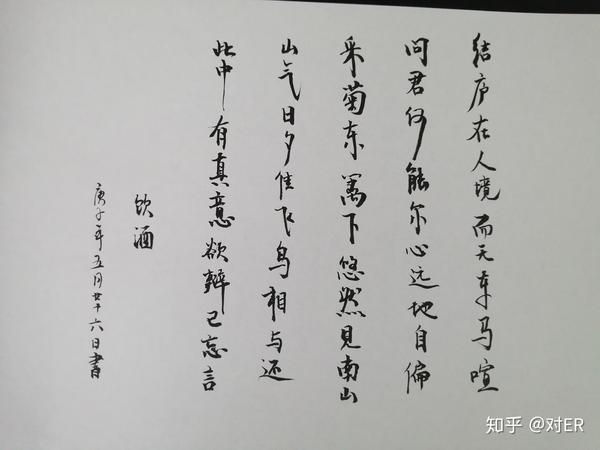 结庐在人境而无车马喧
问君何能尔心远地自偏
采菊东篱下悠然见南山
山气日夕佳飞鸟相与还
此中有真意欲辩已忘言
饮酒
庚子年五月廿六日书
知乎 @对ER